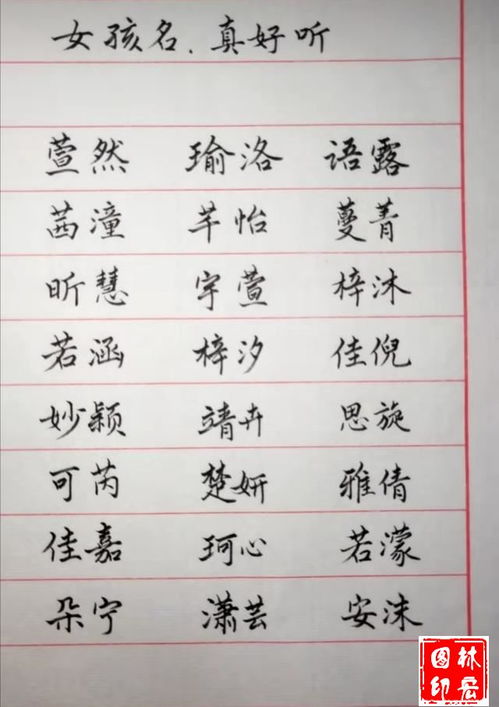 女孩名、真好听
萱然 瑜洛 语露
茜潼 芊怡 蔓菁
昕慧 宇萱 梓沐
若涵 梓汐 佳倪
妙颖 靖卉 思旋
可芮 楚妍 雅倩
佳嘉 珂心 若濛
朵宁 潇芸 安沫